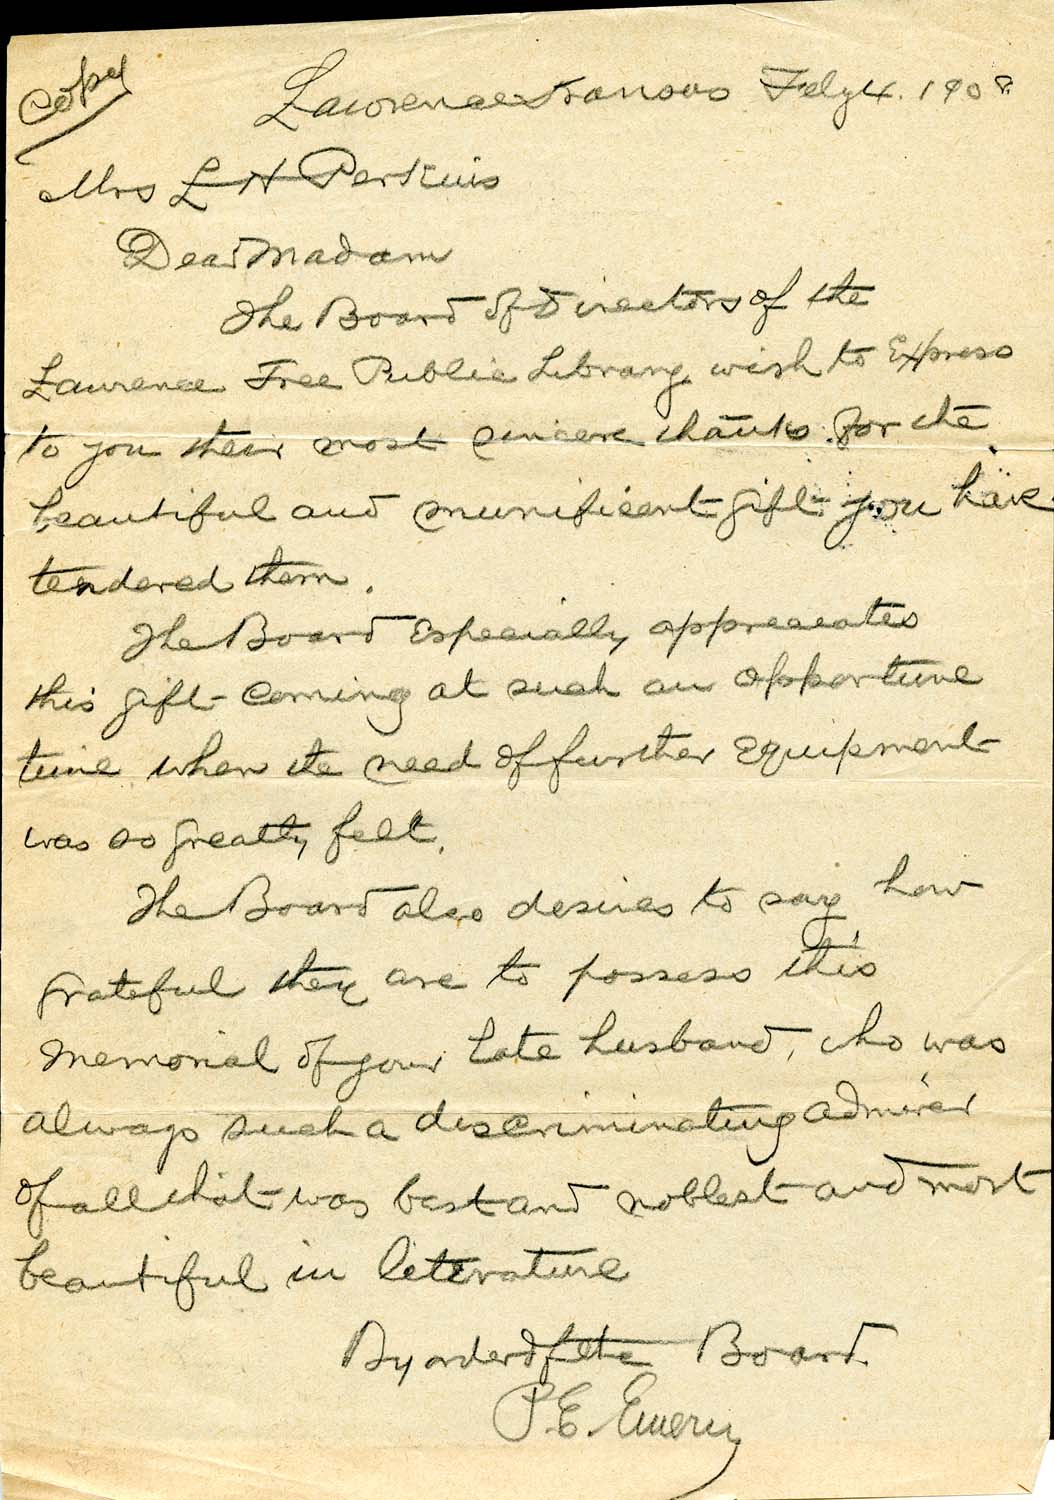 Copy
Lawrence Kansas Feby 4. 1908
Mrs L H Perkins
Dear Madam
The Board of Directors of the
Lawrence Free Public Library wish to Express
to you their most sincere thanks for the
beautiful and munificent gift you have
tendered them.
The Board Especially appreciates
this gift - coming at such an opportune
time when the need of further Equipment
was so greatly felt.
The Board also desires to say how
grateful they are to possess this
Memorial of your late husband, who was
always such a discriminating admirer
of all that was best and noblest and most
beautiful in literature
By order of the Board.
P. E. Emery